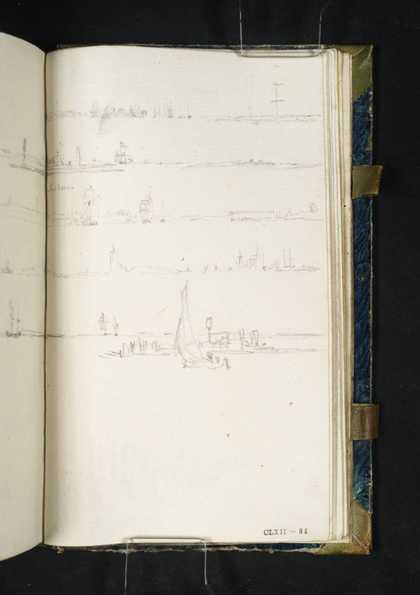 CLXII - 84